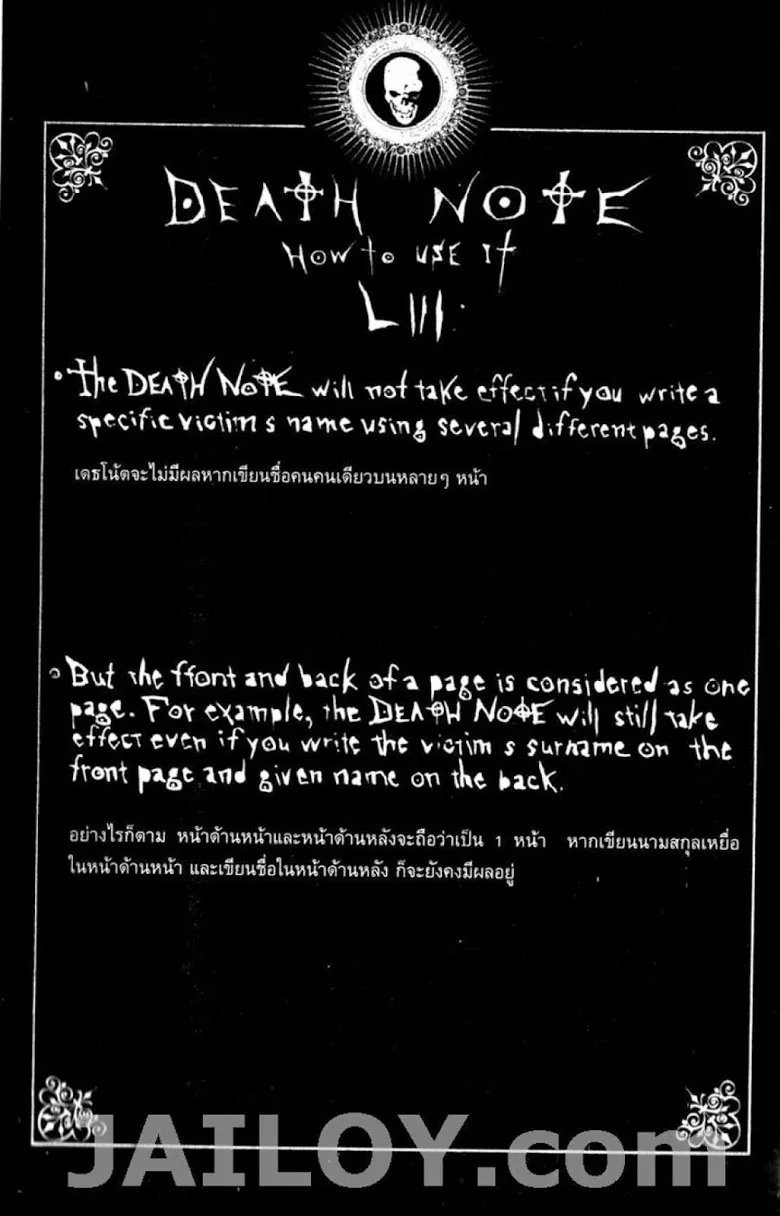 DEATH NOTE
HOW to USE It
LIII
• The DEATH NOTE will not take effect if you write a
specific victim s name using several different pages.
เดธโน้ตจะไม่มีผลหากเขียนชื่อคนคนเดียวบนหลายๆ หน้า
• But the front and back of a page is considered as one
page. For example, the DEATH NOTE will still take
effect even if you write the victim s surname on the
front page and given name on the back.
อย่างไรก็ตาม หน้าด้านหน้าและหน้าด้านหลังจะถือว่าเป็น 1 หน้า หากเขียนนามสกุลเหยื่อ
ในหน้าด้านหน้า และเขียนชื่อในหน้าด้านหลัง ก็จะยังคงมีผลอยู่
JAILOY.com